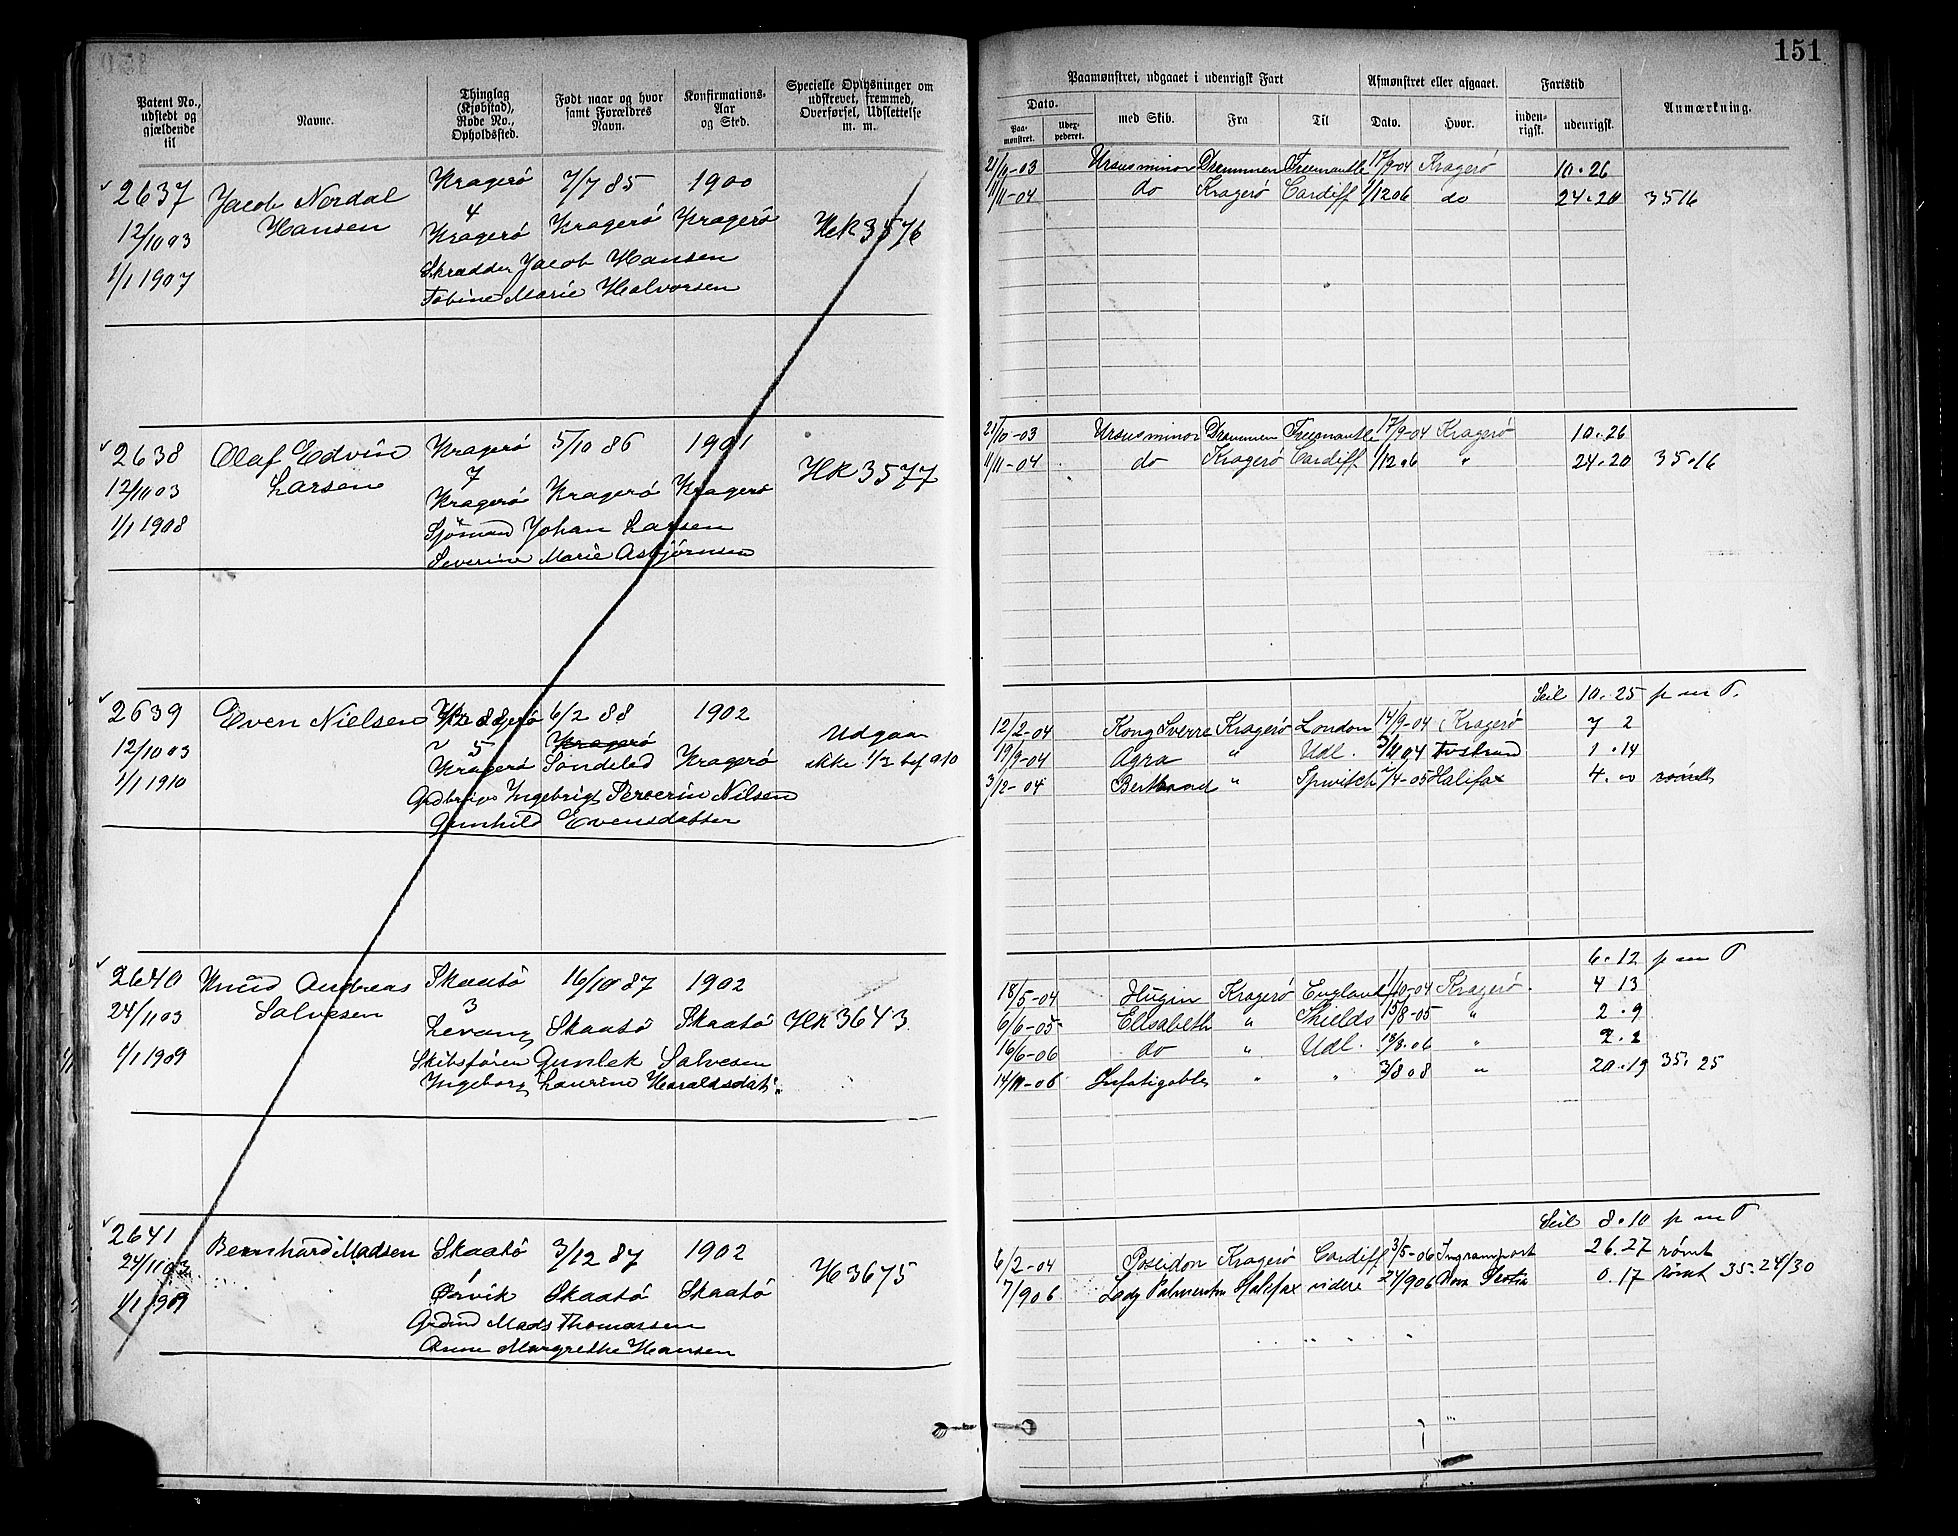 151
Patent No., udstedt og gjældende til
Navne.
Thinglag (Kjøbstad), Rode No., Opholdssted.
Født naar og hvor samt Forældres Navn.
Konfirmations-Aar og Sted.
Specielle Oplysninger om udskrevet, fremmed, Overførsel, Udslettelse m. m.
Paamønstret, udgaaet i udenrigsk Fart
Afmønstret eller afgaaet.
Fartstid
Anmærkning.
Dato.
med Skib.
Fra
Til
Dato.
Hvor.
inden-rigsk.
udenrigsk.
Paa-mønstret.
2637 Jacob Nordal Kragerø 7/7 85 1900
12/10 03 Hansen 4
Kragerø Kragerø Kragerø HK 3576
1/1 1907 Skrædder Jacob Hansen
Tobine Marie Halvorsen
21/10-03 Ursus minor Drammen Freemantle 17/9-04 Kragerø 10.26
11/11-04 do Kragerø Cardiff 1/12 06 do 24.20 3516
2638 Olaf Edvin Kragerø 5/10 86 1901
12/10 03 Larsen 7 HK 3577
Kragerø Kragerø Kragerø
1/1 1908 Sjømand Johan Larsen
Severine Marie Asbjørnsen
21/10-03 Ursus minor Drammen Freemantle 17/9-04 Kragerø 10.26
11/11-04 do Kragerø Cardiff 1/12 06 " 24.20 35.16
2639 Even Nielsen Kragerø 6/2 88 1902
12/10 03 5 Kragerø Udgaar
Kragerø Søndeled Kragerø ikke 1/3 bef 910
1/1 1910 Ingebrigt Nilsen
Gunhild Evensdatter
Seil 10.25 p m T.
12/2-04 Kong Sverre Kragerø London 14/9-04 Kragerø 7 2
19/9-04 Agra " Udl. 1.14
3/12-04 " 1/4-05 Halifax 4.00 rømt
2640 Knud Andreas Skaatø 16/10 87 1902
24/11 03 Salvesen 3
Levang Skaatø Skaatø HK 3643
1/1 1909 Skibsfører Gunlek Salvesen
Ingeborg Laurine Haraldsdat
6.12 p m T
18/5-04 Hugin Kragerø England 11/10-04 Kragerø 4 13
6/6-05 Elisabeth " Shields 15/8-05 " 2.9
16/6-06 do " Udl. " 2.2
14/11-06 Infatigable " " 3/8 08 " 20.19 35.25
2641 Bernhard Madsen Skaatø 3/12 87 1902
24/11 03 1 H 3675
1/1 1909 Ørvik Skaatø Skaatø
Mads Thomassen
Anne Margrethe Hansen
Seil 8.10 p m T
6/2-04 Poseidon Kragerø Cardiff 3/5-06 Ingramport 26.27 rømt
7/9 06 Lady Palmerston Halifax videre 24/9 06 Nova Scotia 0.17 rømt 35.24/30